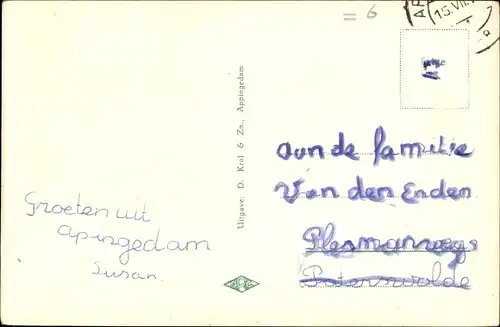 = 6
15. VII.
Groeten uit
apingedam
Susan.
Uitgave: D. Krol & Zn., Appingedam
aan de familie
Van den Enden
Paterswolde